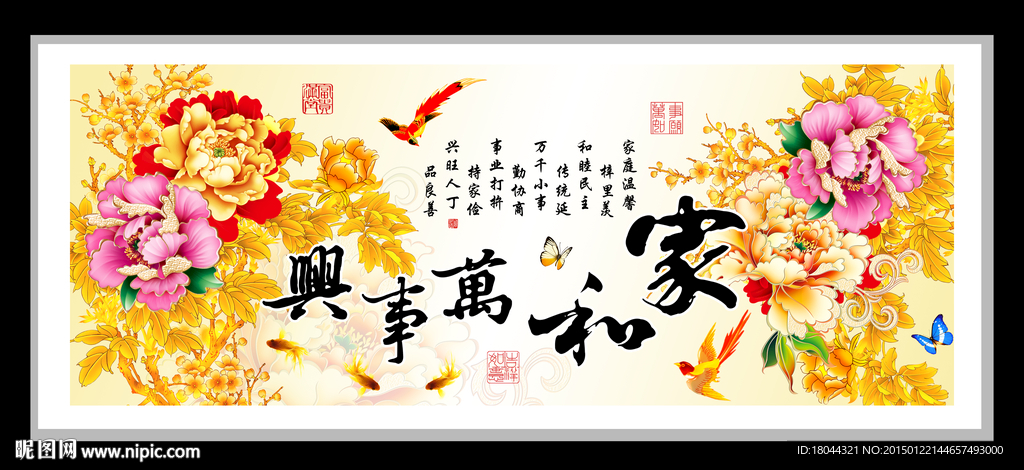 家和萬事興
家庭温馨
梓里羡
和睦民主
传统延
万千小事
勤协商
事业打拚
持家俭
兴旺人丁
品良善
吉祥如意
昵图网 www.nipic.com
ID:18044321 NO:20150122144657493000